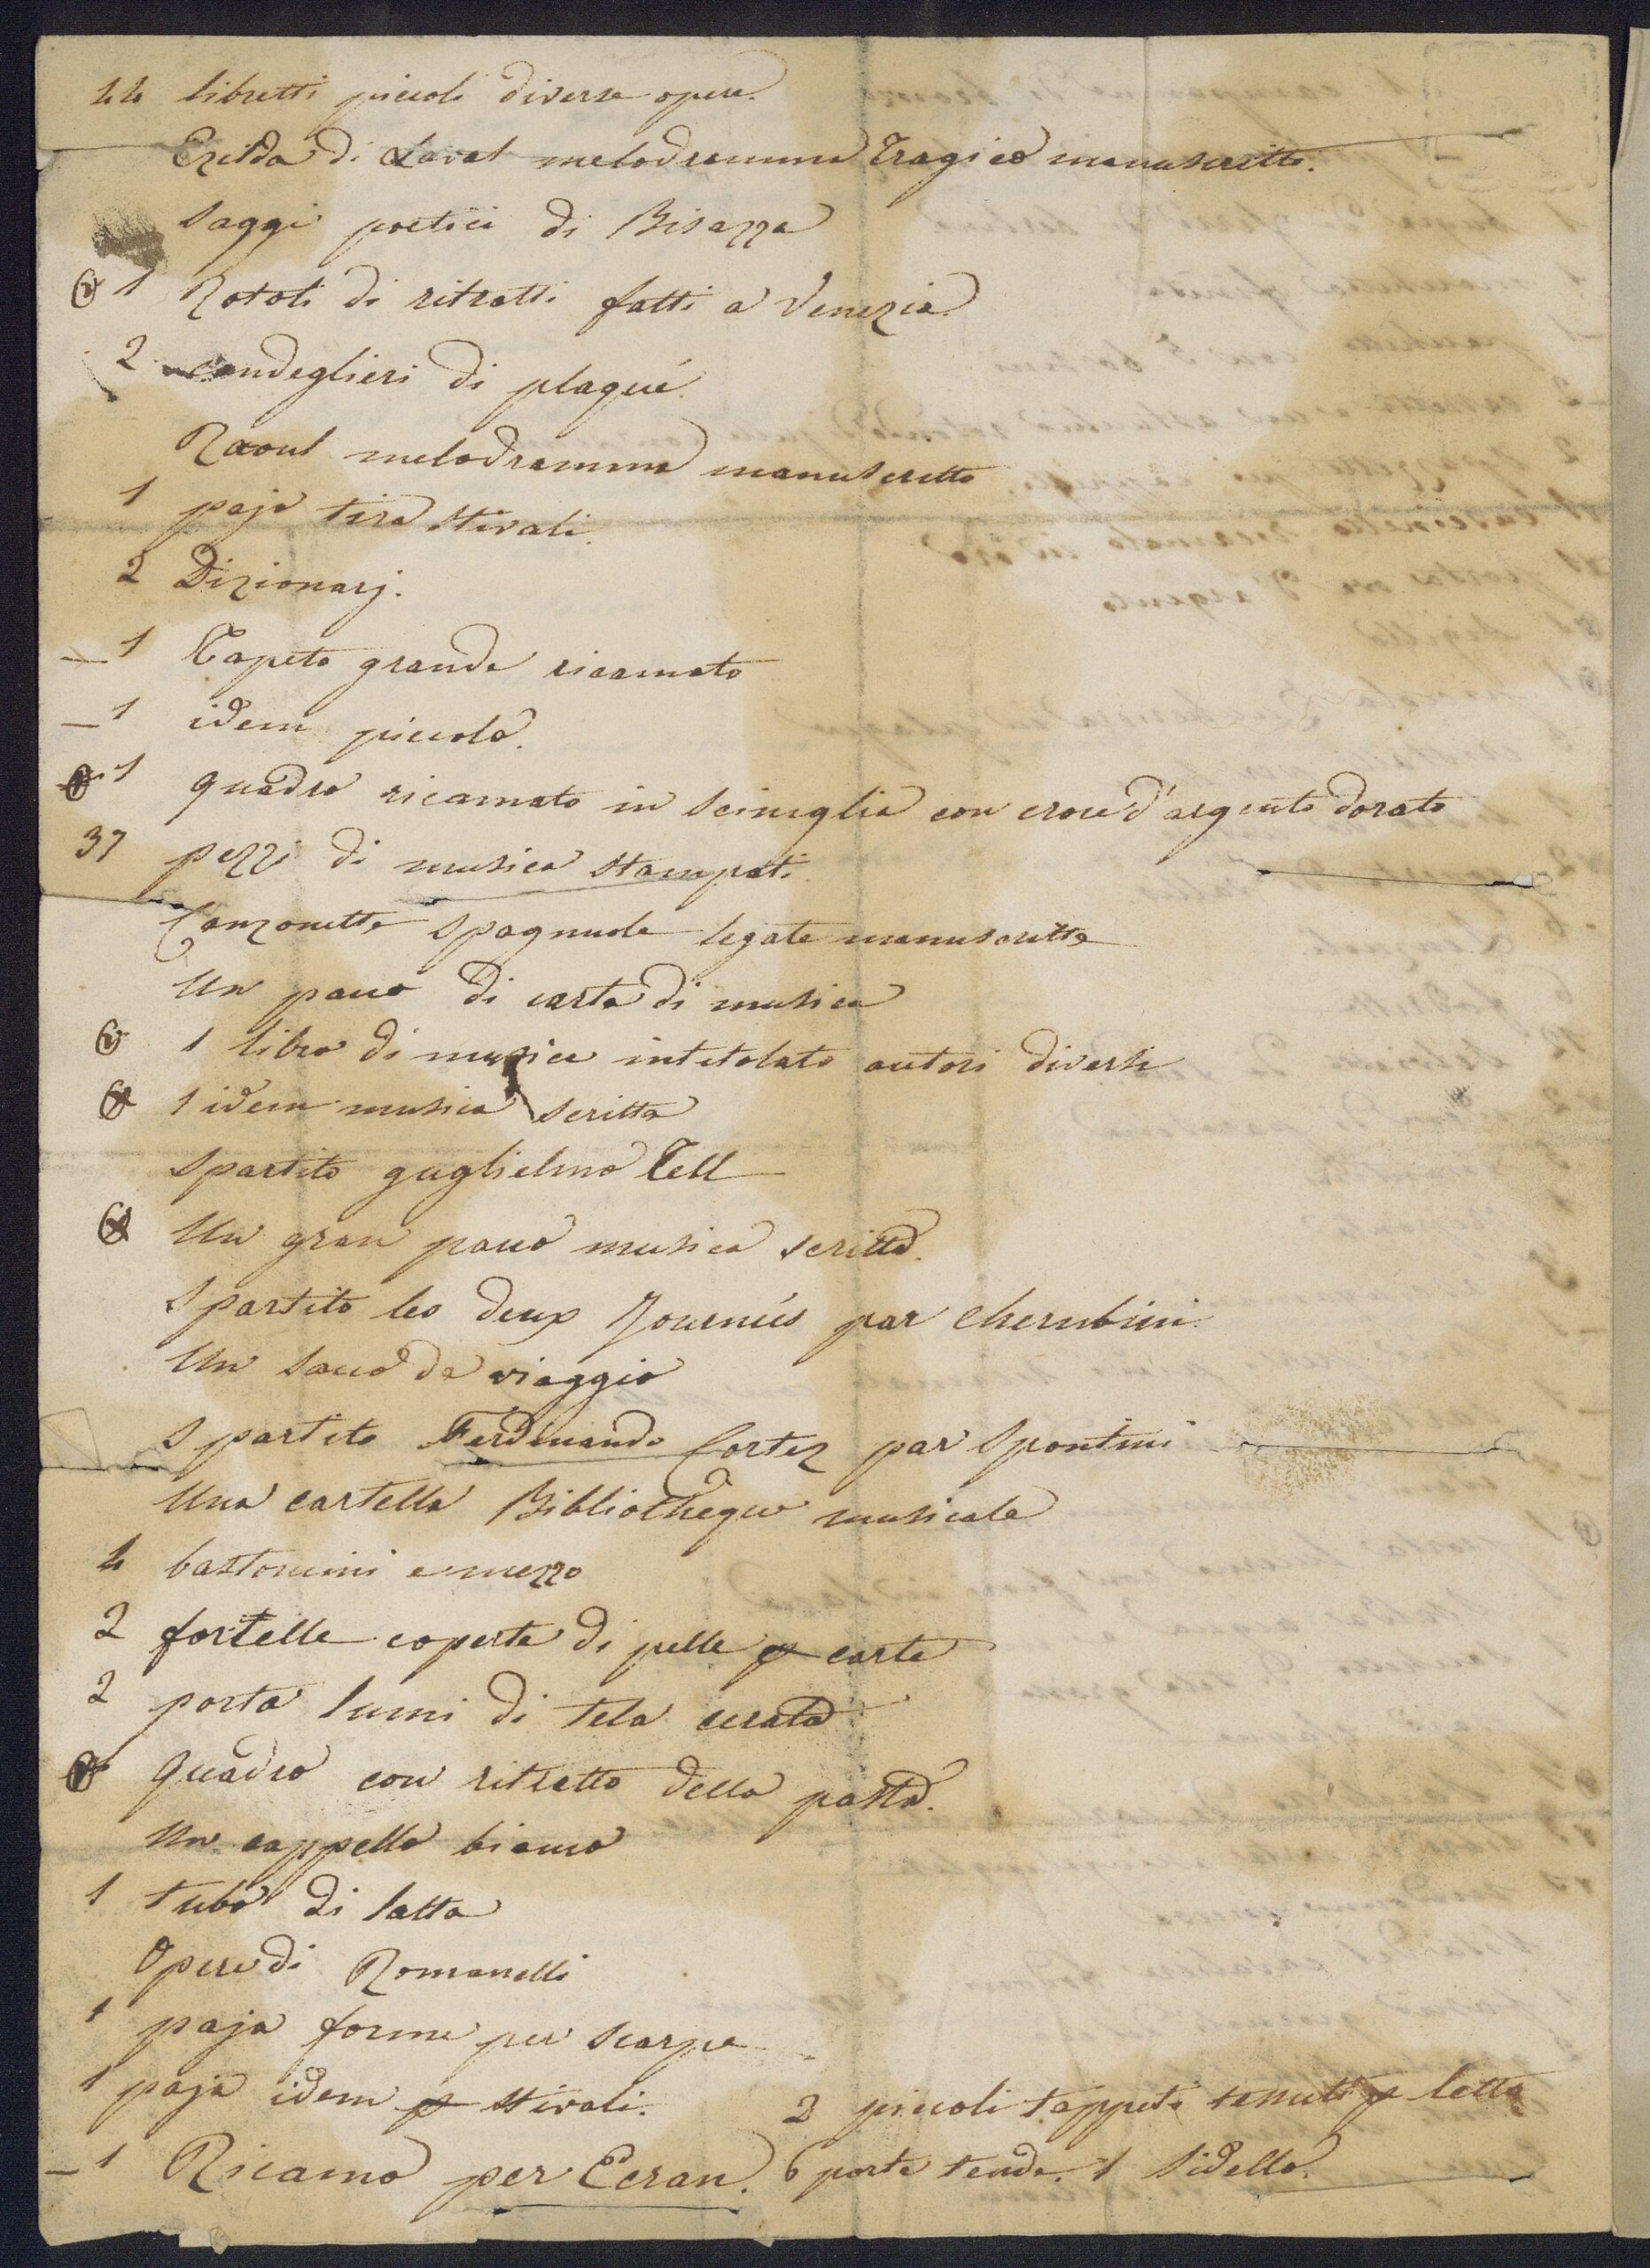 44 libretti piccoli diverse opere.
Ezilda di Laval melodramma Tragico manuscritto.
Saggi poetici di Bisazza
1 Rotoli di ritratti fatti a Venezia
2 candeglieri di plaqué
Raoul melodramma manuscritto
1 paja tira stivali.
2 Dizionarj.
— 1 Tapeto grande ricamato
— 1 idem piccolo.
1 quadro ricamato in sciniglia con croce d'argento dorato
37 pezzi di musica stampati.
Canzonette spagnuole legate manuscritte
Un pacco di carta di musica
1 libro di musica intitolato autori diversi
1 idem musica scritta
Spartito guglielmo Tell
Un gran pacco musica scritta.
Spartito les deux Journées par Cherubini.
Un sacco da viaggio
Spartito Ferdinando Cortez par Spontini
Una cartella Bibliotheque musicale
4 bastoncini e mezzo
2 fortelle coperte di pelle p carte
2 porta lumi di tela cerata
Quadro con ritratto della pasta.
Un cappello bianco
1 tubo di latta
Opere di Romanelli
1 paja forme per scarpe
1 paja idem p stivali. 2 piccoli tappeti tessuti p letto
— 1 Ricamo per Ecran. 6 porte tende. 1 Sidello.